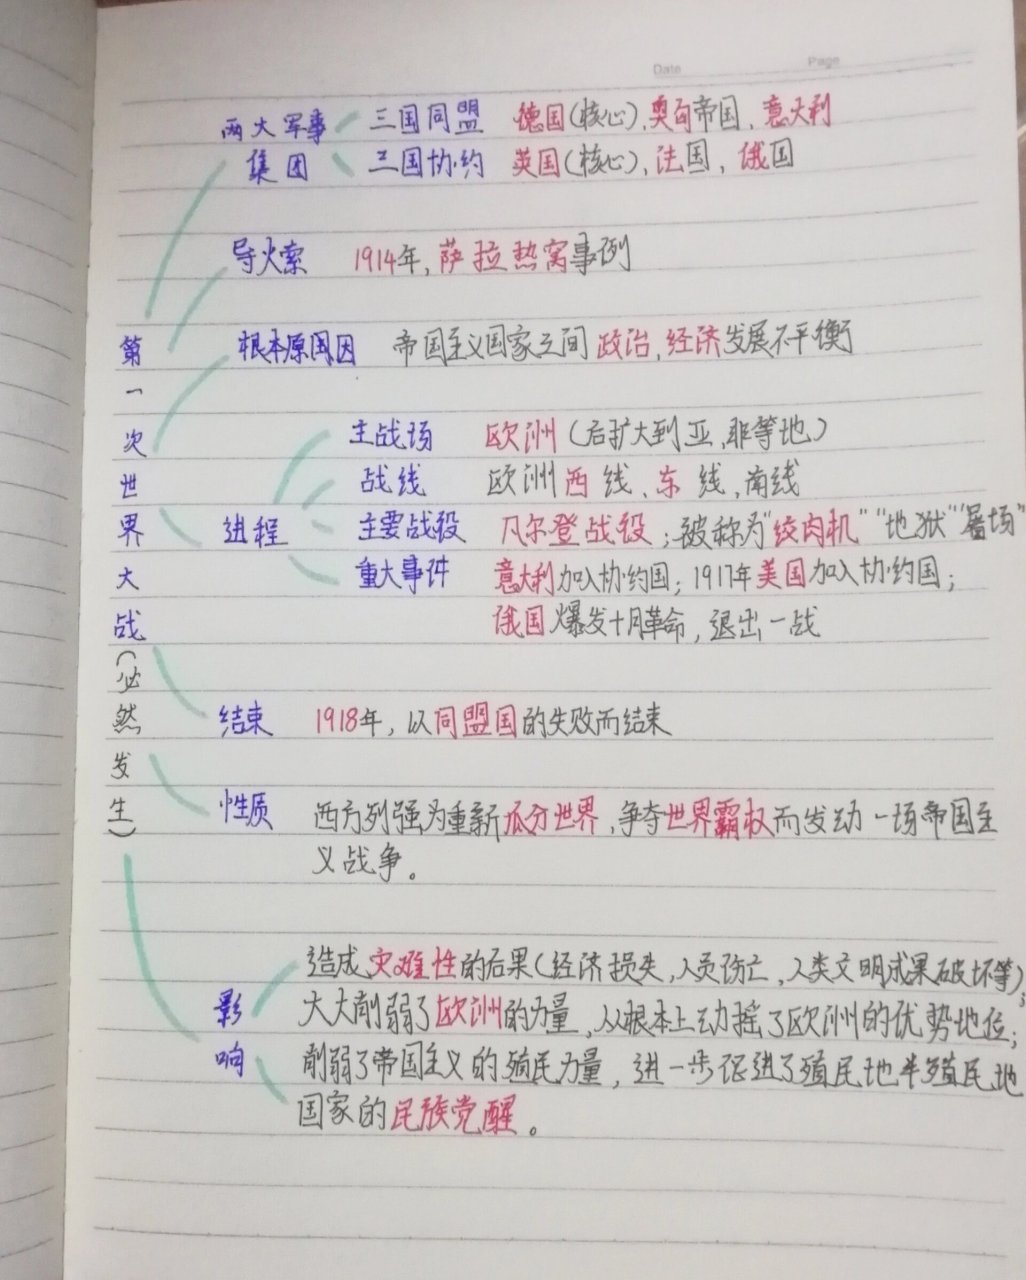 Date Page
两大军事 三国同盟 德国(核心)、奥匈帝国、意大利
集团 三国协约 英国(核心)、法国、俄国
导火索 1914年,萨拉热窝事例
根本原因 帝国主义国家之间政治,经济发展不平衡
第一次世界大战(必然发生)
主战场 欧洲(后扩大到亚,非等地)
战线 欧洲西线、东线,南线
进程 主要战役 凡尔登战役;被称为"绞肉机""地狱""屠场"
重大事件 意大利加入协约国;1917年美国加入协约国;
俄国爆发十月革命,退出一战
结束 1918年,以同盟国的失败而结束
性质 西方列强为重新瓜分世界,争夺世界霸权而发动一场帝国主
义战争。
造成灾难性的后果(经济损失,人员伤亡,人类文明成果破坏等);
影 大大削弱了欧洲的力量,从根本上动摇了欧洲的优势地位;
响 削弱了帝国主义的殖民力量,进一步促进了殖民地半殖民地
国家的民族觉醒。